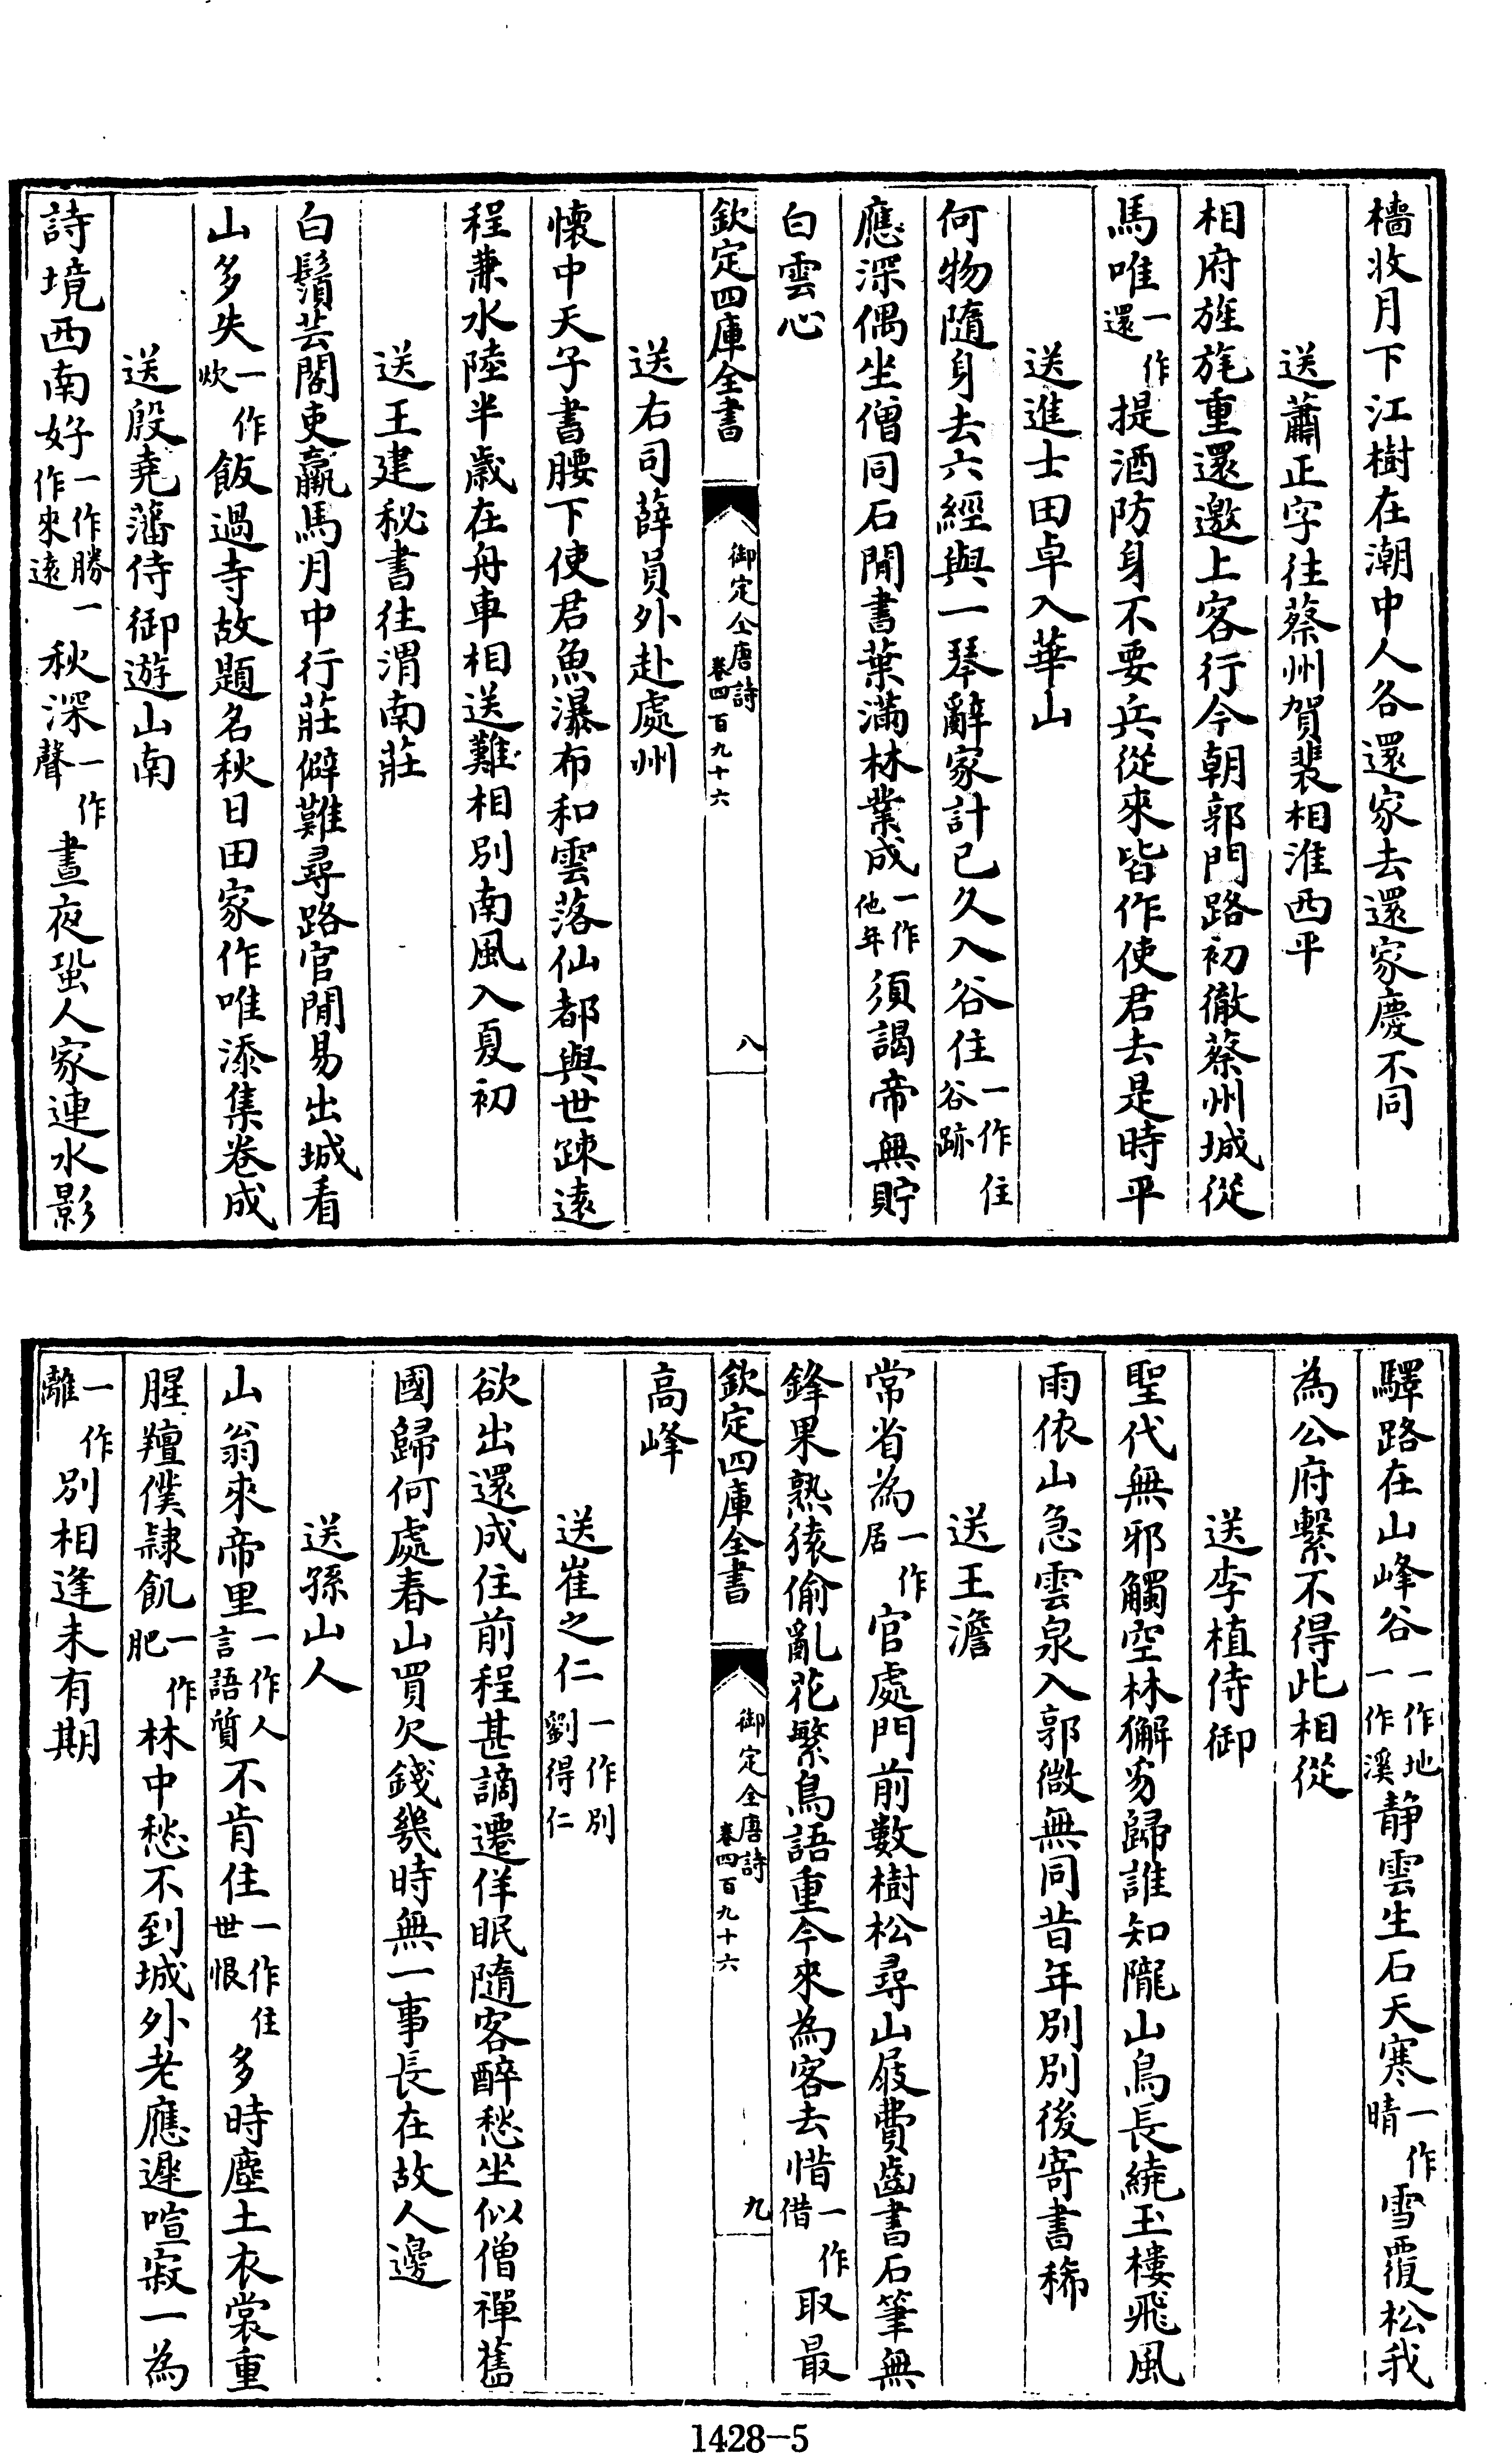 檣收月下江樹在潮中人各還家去還家慶不同
送蕭正字往蔡州賀裴相淮西平
相府旌旄重還邀上客行今朝郭門路初徹蔡州城從
馬唯一作還提酒防身不要兵從來皆作使君去是時平
送進士田卓入華山
何物隨身去六經與一琴辭家計已久入谷住一作住谷跡
應深偶坐僧同石閒書葉滿林業成一作他年須謁帝無貯
白雲心
欽定四庫全書 御定全唐詩 卷四百九十六 八
送右司薛員外赴處州
懷中天子書腰下使君魚瀑布和雲落仙都與世疎遠
程兼水陸半歲在舟車相送難相別南風入夏初
送王建秘書往渭南莊
白鬚芸閣吏羸馬月中行莊僻難尋路官閒易出城看
山多失一作炊飯過寺故題名秋日田家作唯添集卷成
送殷堯藩侍御遊山南
詩境西南好一作勝一作來遠秋深一作聲晝夜蛩人家連水影
驛路在山峰谷一作地一作溪静雲生石天寒一作晴雪覆松我
為公府繫不得此相從
送李植侍御
聖代無邪觸空林獬豸歸誰知隴山鳥長繞玉樓飛風
雨依山急雲泉入郭微無同昔年別別後寄書稀
送王澹
常省為一作居官處門前數樹松尋山屐費齒書石筆無
鋒果熟猿偷亂花繁鳥語重今來為客去惜一作借取最
欽定四庫全書 御定全唐詩 卷四百九十六 九
高峰
送崔之仁一作別劉得仁
欲出還成住前程甚謫遷佯眠隨客醉愁坐似僧禪舊
國歸何處春山買欠錢幾時無一事長在故人邊
送孫山人
山翁來帝里一作人言語質不肯住一作住世恨多時塵土衣裳重
腥羶僕隷飢一作肥林中愁不到城外老應遲喧寂一為
一作離別相逢未有期
1428-5